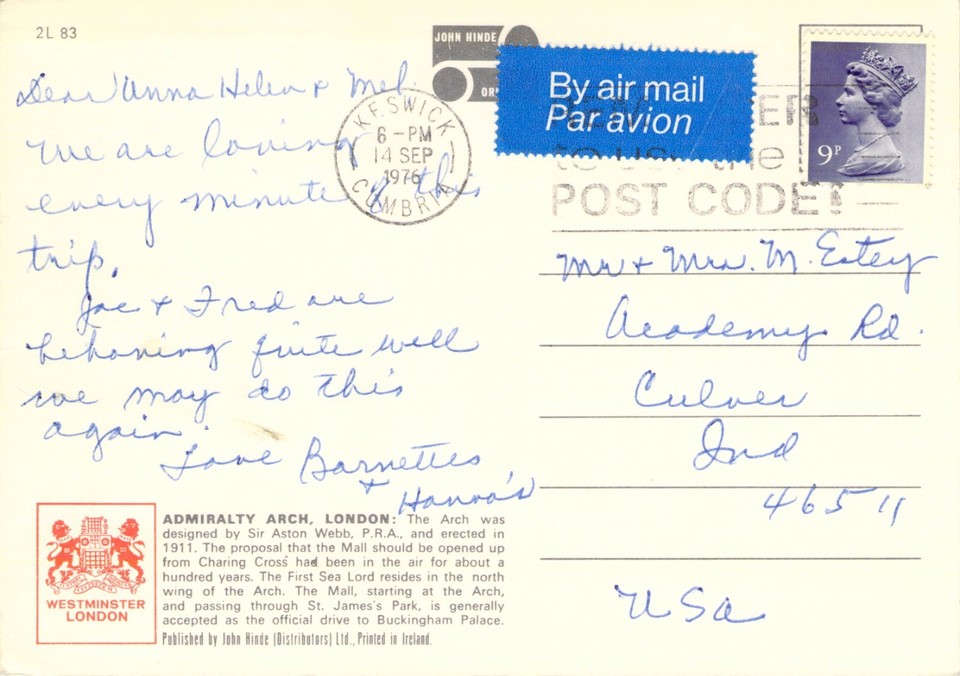 2L 83
JOHN HINDE
OR
By air mail
Par avion
ER
to use the
POST CODE!
KESWICK
6-PM
14 SEP
1976
CUMBRIA
9P
Dear Anna Helen & Mel.
We are loving
every minute of this
trip.
Joe & Fred are
behaving quite well
we may do this
again.
Love Barnettes
+ Hanna's
Mr + Mrs. M. Estey
Academy Rd.
Culver
Ind
46511
USa
WESTMINSTER
LONDON
ADMIRALTY ARCH, LONDON: The Arch was
designed by Sir Aston Webb, P.R.A., and erected in
1911. The proposal that the Mall should be opened up
from Charing Cross had been in the air for about a
hundred years. The First Sea Lord resides in the north
wing of the Arch. The Mall, starting at the Arch,
and passing through St. James's Park, is generally
accepted as the official drive to Buckingham Palace.
Published by John Hinde (Distributors) Ltd., Printed in Ireland.